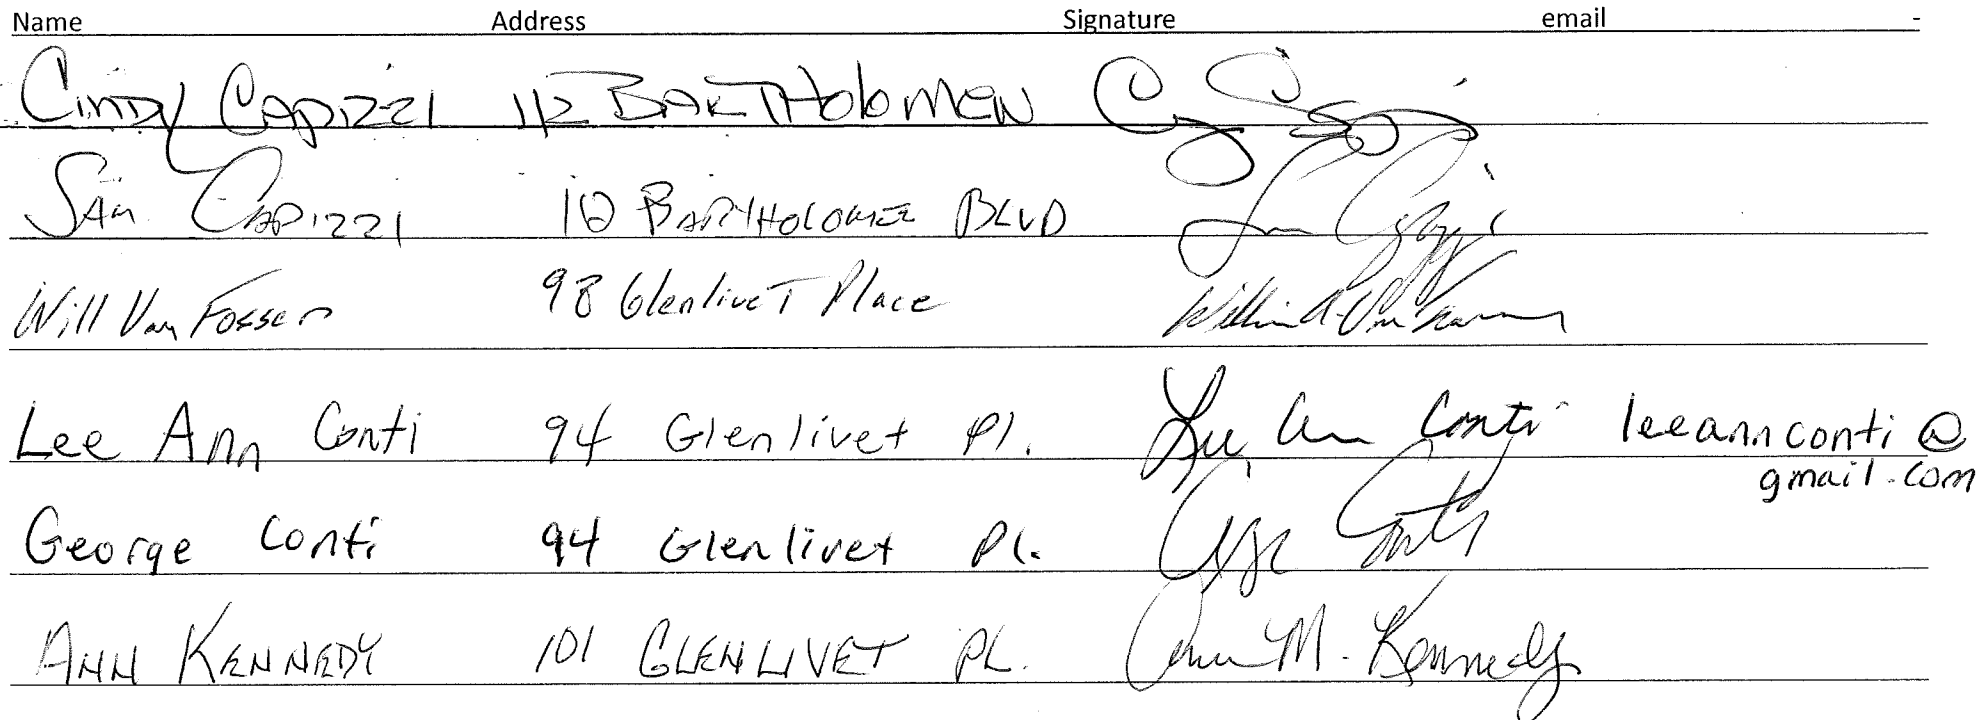 Name Address Signature email -
Cindy Capizzi 112 BARTHolomew
SAM CAPIZZI 112 BARTHOLOMEW BLVD
Will Van Fossen 98 Glenlivet Place
Lee Ann Conti 94 Glenlivet Pl. Lee Ann Conti leeannconti@
gmail.com
George Conti 94 Glenlivet Pl. George Conti
ANN KENNEDY 101 GLENLIVET PL. Ann M. Kennedy